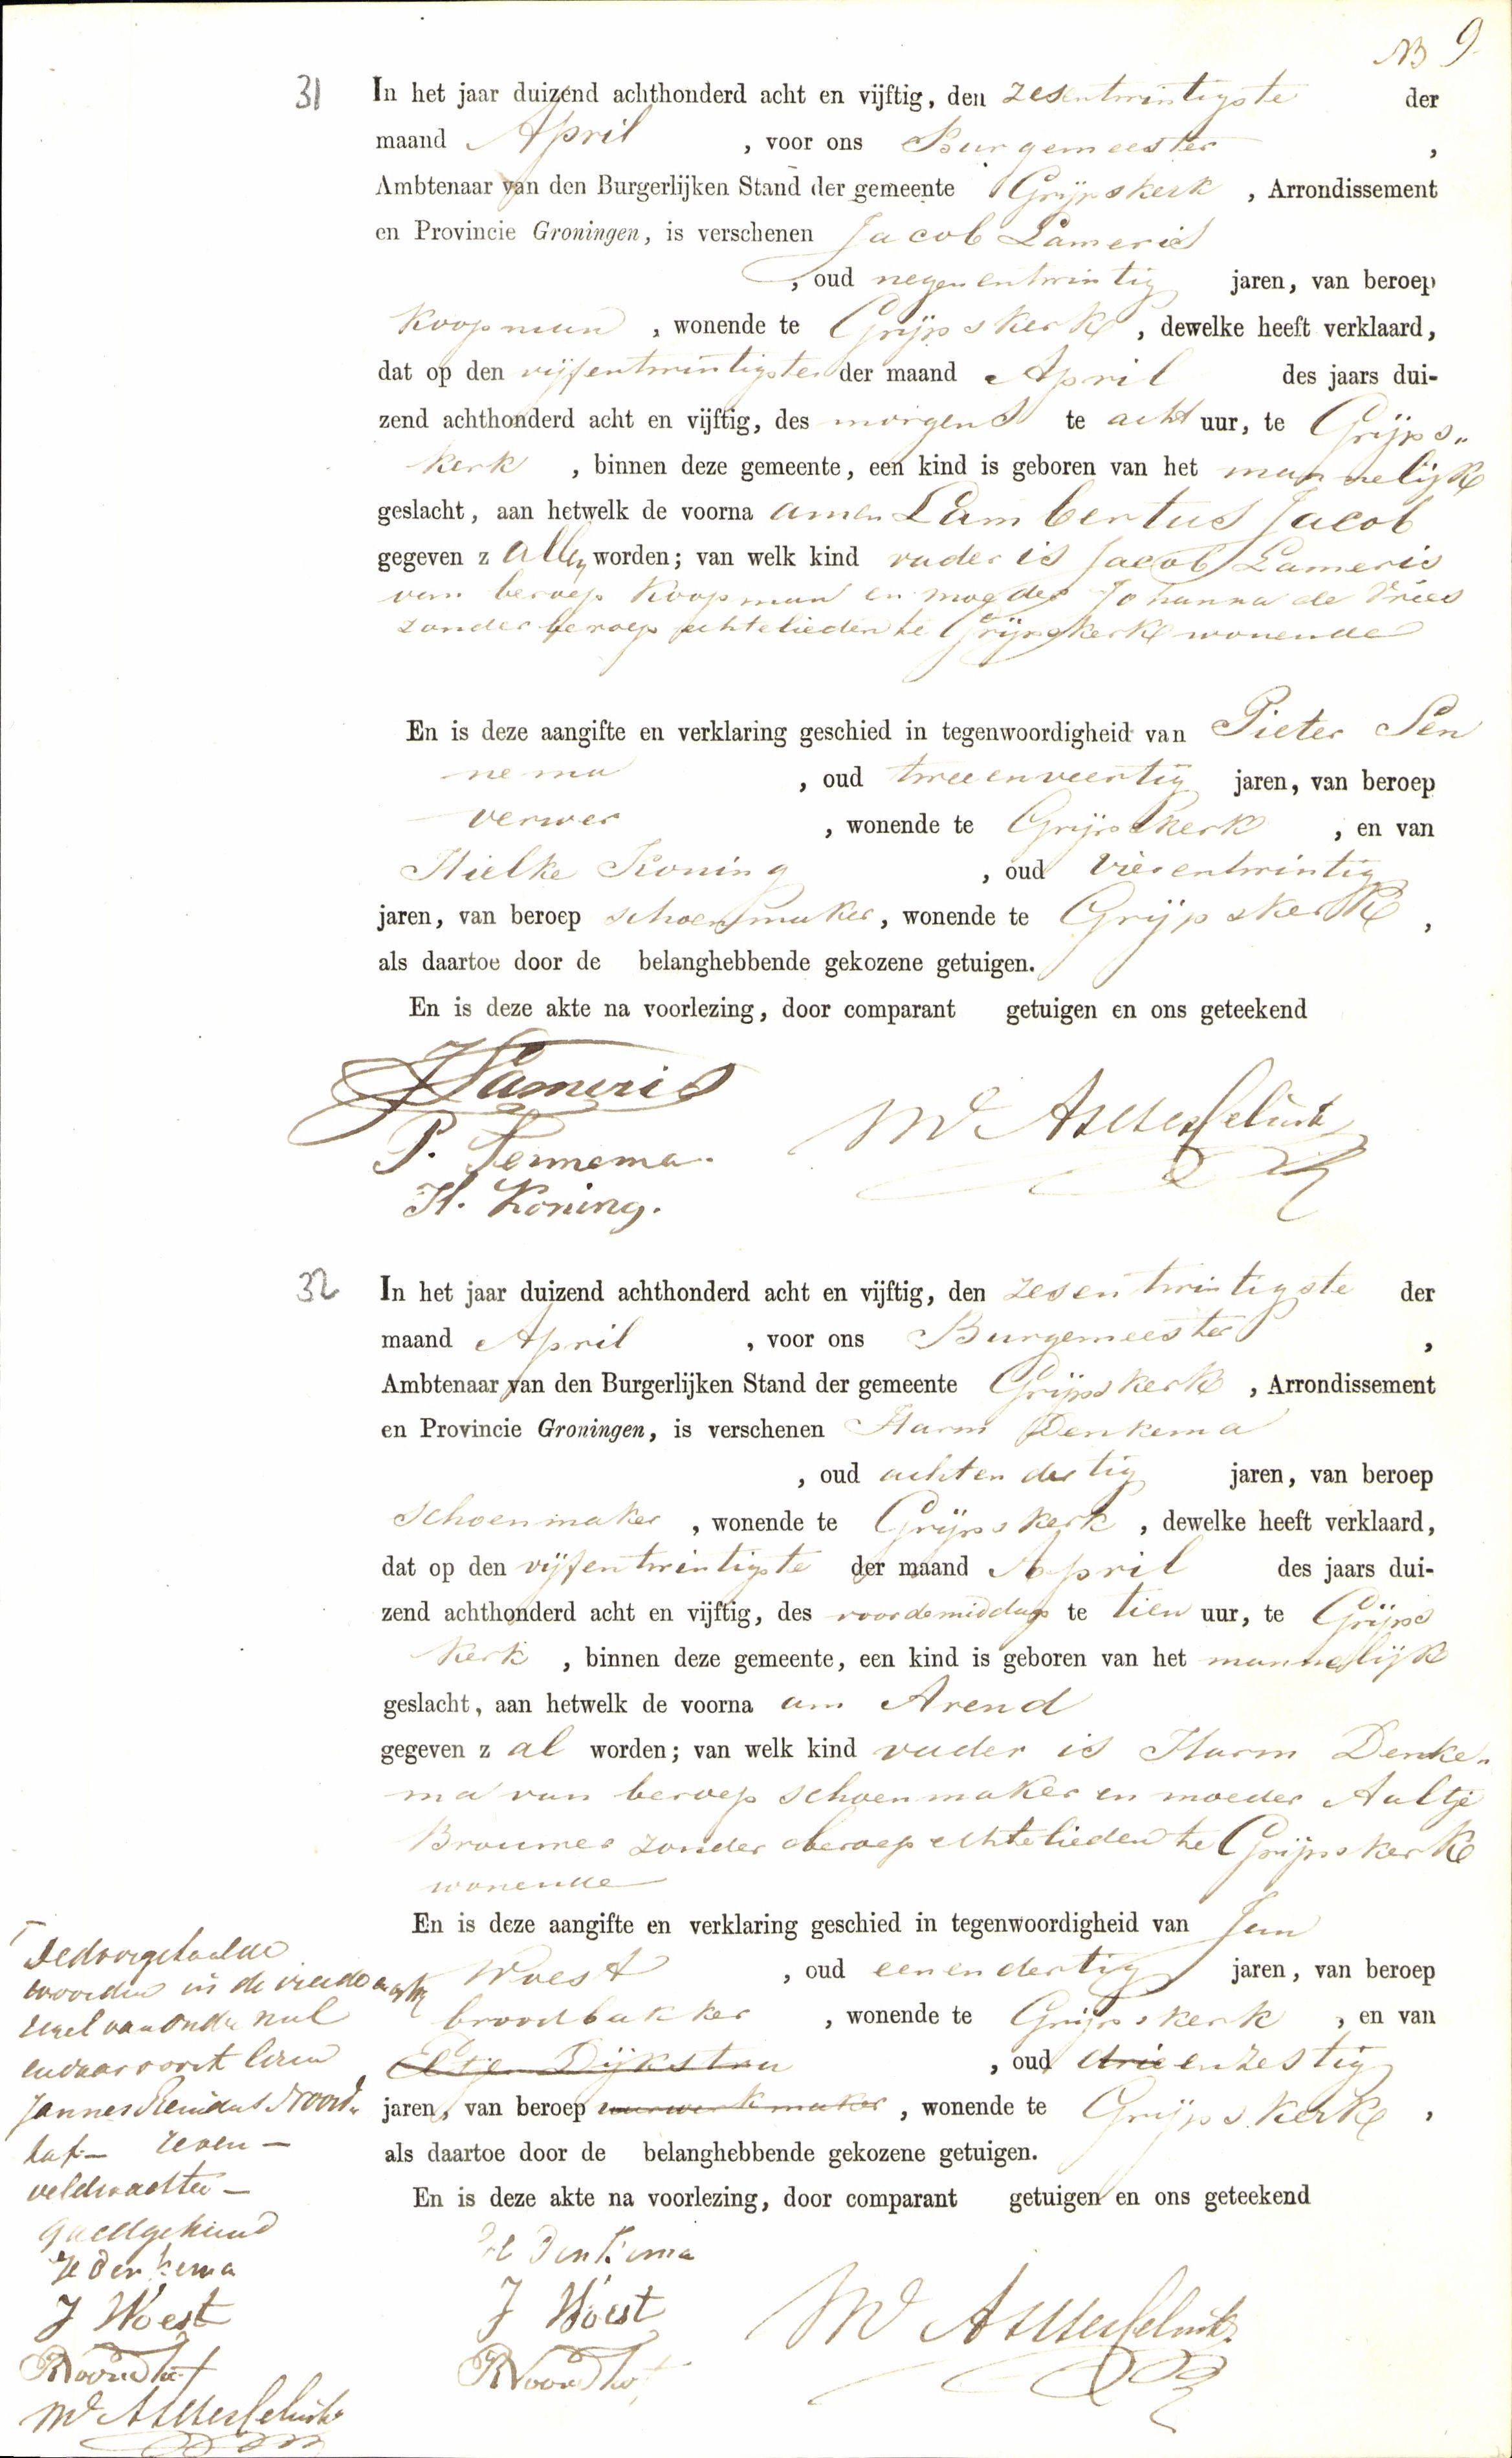 NB 9
31 In het jaar duizend achthonderd acht en vijftig, den zesentwintigste der
maand April , voor ons Burgemeester ,
Ambtenaar van den Burgerlijken Stand der gemeente Grijpskerk , Arrondissement
en Provincie Groningen, is verschenen Jacob Lameris
, oud negenentwintig jaren, van beroep
Koopman , wonende te Grijpskerk , dewelke heeft verklaard,
dat op den vijfentwintigsten der maand April des jaars dui-
zend achthonderd acht en vijftig, des morgens te acht uur, te Grijps„
kerk , binnen deze gemeente, een kind is geboren van het mannelijk
geslacht, aan hetwelk de voorna amen Lambertus Jacob
gegeven z allen worden; van welk kind vader is Jacob Lameris
van beroep Koopman en moeder Johanna de Vries
zonder beroep echtelieden te Grijpskerk wonende
En is deze aangifte en verklaring geschied in tegenwoordigheid van Pieter Sen
nema , oud tweeenveertig jaren, van beroep
verwer , wonende te Grijpskerk , en van
Hielke Koning , oud vierentwintig
jaren, van beroep schoenmaker, wonende te Grijpskerk ,
als daartoe door de belanghebbende gekozene getuigen.
En is deze akte na voorlezing, door comparant getuigen en ons geteekend
J Lameris
P. Sennema.
H. Koning.
32 In het jaar duizend achthonderd acht en vijftig, den zesentwintigste der
maand April , voor ons Burgemeester ,
Ambtenaar van den Burgerlijken Stand der gemeente Grijpskerk , Arrondissement
en Provincie Groningen, is verschenen Harm Denkema
, oud achtendertig jaren, van beroep
schoenmaker , wonende te Grijpskerk , dewelke heeft verklaard,
dat op den vijfentwintigste der maand April des jaars dui-
zend achthonderd acht en vijftig, des voordemiddags te tien uur, te Grijps
kerk , binnen deze gemeente, een kind is geboren van het mannelijk
geslacht, aan hetwelk de voorna am Arend
gegeven z al worden; van welk kind vader is Harm Denke„
ma van beroep schoenmaker en moeder Aaltje
Brouwer zonder beroep echtelieden te Grijpskerk
wonende
En is deze aangifte en verklaring geschied in tegenwoordigheid van Jan
Woest , oud eenendertig jaren, van beroep
broodbakker , wonende te Grijpskerk , en van
Eltje Dijkstra , oud drieenzestig
jaren, van beroep uurwerkmaker , wonende te Grijpskerk ,
als daartoe door de belanghebbende gekozene getuigen.
En is deze akte na voorlezing, door comparant getuigen en ons geteekend
H Denkema
J Woest
R Noordhof
De doorgehaalde
woorden in de vierde
regel van onder nul
en daarvoor te lezen
Jannes Noord„
hof — zeven —
veldwachter —
goedgekeurd
H Denkema
J Woest
R Noordhof